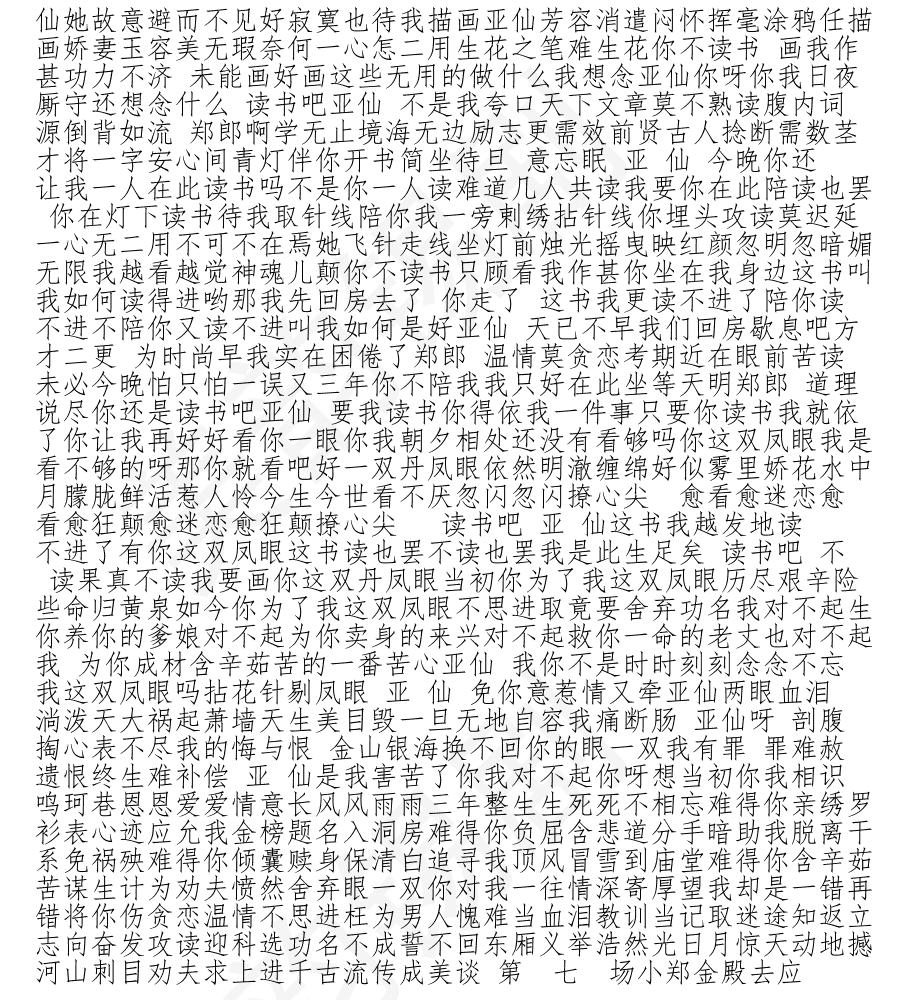 仙她故意避而不见好寂寞也待我描画亚仙芳容消遣闷怀挥毫涂鸦任描
画娇妻玉容美无瑕奈何一心怎二用生花之笔难生花你不读书 画我作
甚功力不济 未能画好画这些无用的做什么我想念亚仙你呀你我日夜
厮守还想念什么 读书吧亚仙 不是我夸口天下文章莫不熟读腹内词
源倒背如流 郑郎啊学无止境海无边励志更需效前贤古人捻断需数茎
才将一字安心间青灯伴你开书简坐待旦 意忘眠 亚 仙 今晚你还
让我一人在此读书吗不是你一人读难道几人共读我要你在此陪读也罢
你在灯下读书待我取针线陪你我一旁刺绣拈针线你埋头攻读莫迟延
一心无二用不可不在焉她飞针走线坐灯前烛光摇曳映红颜忽明忽暗媚
无限我越看越觉神魂儿颠你不读书只顾看我作甚你坐在我身边这书叫
我如何读得进哟那我先回房去了 你走了 这书我更读不进了陪你读
不进不陪你又读不进叫我如何是好亚仙 天已不早我们回房歇息吧方
才二更 为时尚早我实在困倦了郑郎 温情莫贪恋考期近在眼前苦读
未必今晚怕只怕一误又三年你不陪我我只好在此坐等天明郑郎 道理
说尽你还是读书吧亚仙 要我读书你得依我一件事只要你读书我就依
了你让我再好好看你一眼你我朝夕相处还没有看够吗你这双凤眼我是
看不够的呀那你就看吧好一双丹凤眼依然明澈缠绵好似雾里娇花水中
月朦胧鲜活惹人怜今生今世看不厌忽闪忽闪撩心尖 愈看愈迷恋愈
看愈狂颠愈迷恋愈狂颠撩心尖 读书吧 亚 仙这书我越发地读
不进了有你这双凤眼这书读也罢不读也罢我是此生足矣 读书吧 不
读果真不读我要画你这双丹凤眼当初你为了我这双凤眼历尽艰辛险
些命归黄泉如今你为了我这双凤眼不思进取竟要舍弃功名我对不起生
你养你的爹娘对不起为你卖身的来兴对不起救你一命的老丈也对不起
我 为你成材含辛茹苦的一番苦心亚仙 我你不是时时刻刻念念不忘
我这双凤眼吗拈花针剔凤眼 亚 仙 免你意惹情又牵亚仙两眼血泪
淌泼天大祸起萧墙天生美目毁一旦无地自容我痛断肠 亚仙呀 剖腹
掏心表不尽我的悔与恨 金山银海换不回你的眼一双我有罪 罪难赦
遗恨终生难补偿 亚 仙是我害苦了你我对不起你呀想当初你我相识
鸣珂巷恩恩爱爱情意长风风雨雨三年整生生死死不相忘难得你亲绣罗
衫表心迹应允我金榜题名入洞房难得你负屈含悲道分手暗助我脱离干
系免祸殃难得你倾囊赎身保清白追寻我顶风冒雪到庙堂难得你含辛茹
苦谋生计为劝夫愤然舍弃眼一双你对我一往情深寄厚望我却是一错再
错将你伤贪恋温情不思进枉为男人愧难当血泪教训当记取迷途知返立
志向奋发攻读迎科选功名不成誓不回东厢义举浩然光日月惊天动地撼
河山刺目劝夫求上进千古流传成美谈 第 七 场小郑金殿去应